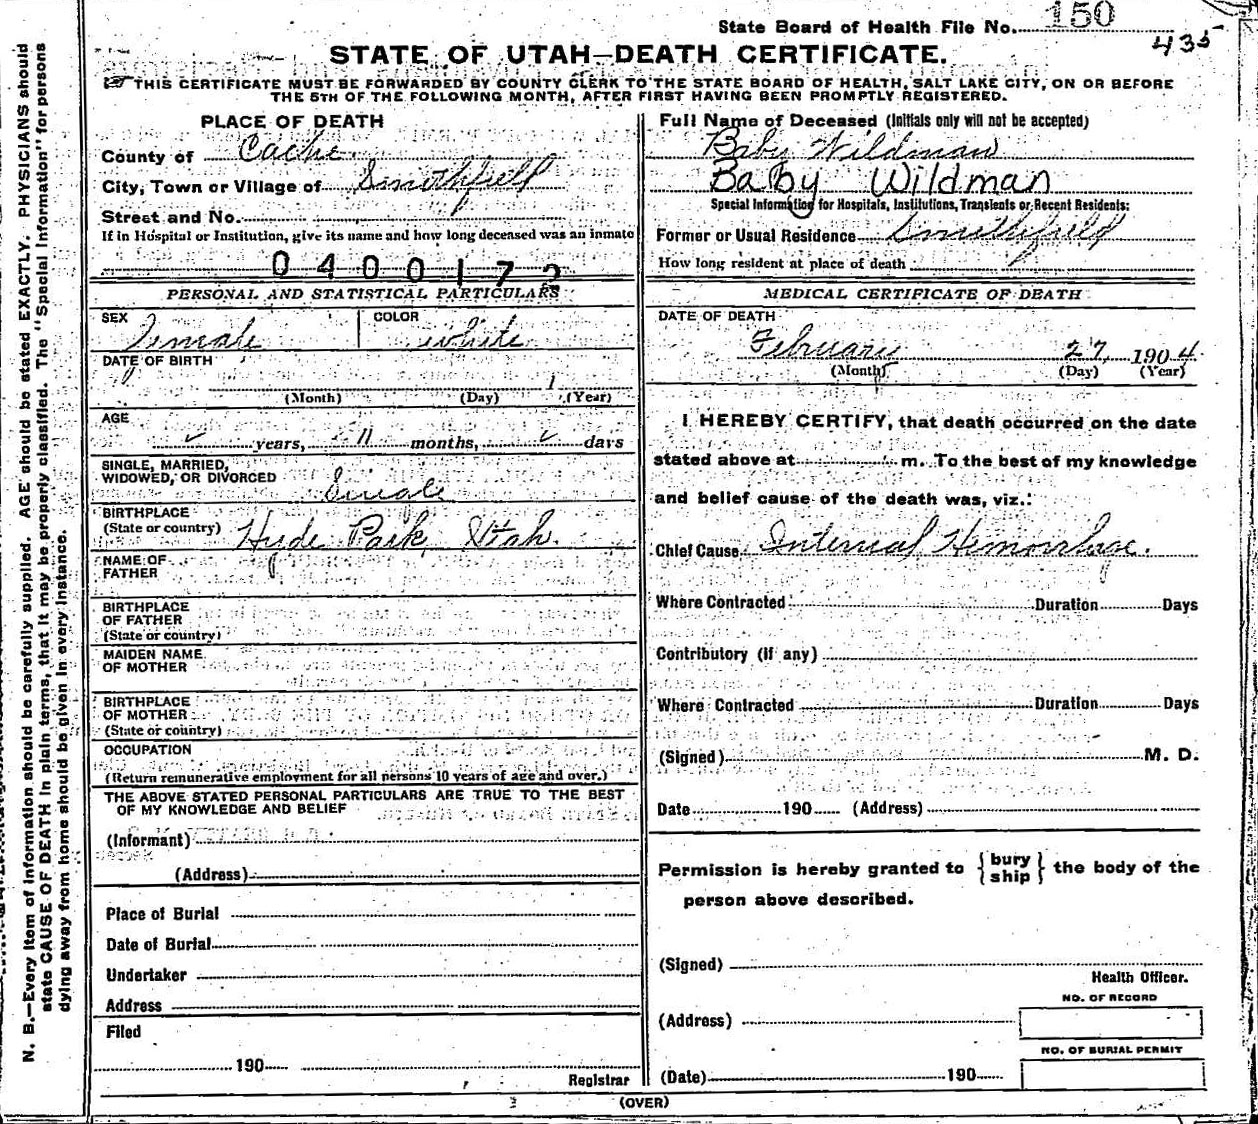 State Board of Health File No. 150
435
STATE OF UTAH—DEATH CERTIFICATE.
THIS CERTIFICATE MUST BE FORWARDED BY COUNTY CLERK TO THE STATE BOARD OF HEALTH, SALT LAKE CITY, ON OR BEFORE
THE 5TH OF THE FOLLOWING MONTH, AFTER FIRST HAVING BEEN PROMPTLY REGISTERED.
PLACE OF DEATH
County of Cache
City, Town or Village of Smithfield
Street and No.
If in Hospital or Institution, give its name and how long deceased was an inmate
0400172
Full Name of Deceased (Initials only will not be accepted)
Baby Wildman
Baby Wildman
Special Information for Hospitals, Institutions, Transients or Recent Residents:
Former or Usual Residence Smithfield
How long resident at place of death
PERSONAL AND STATISTICAL PARTICULARS
SEX Female COLOR white
DATE OF BIRTH
1
(Month) (Day) (Year)
AGE
years, 11 months, days
SINGLE, MARRIED,
WIDOWED, OR DIVORCED Single
BIRTHPLACE
(State or country) Hyde Park, Utah.
NAME OF
FATHER
BIRTHPLACE
OF FATHER
(State or country)
MAIDEN NAME
OF MOTHER
BIRTHPLACE
OF MOTHER
(State or country)
OCCUPATION
(Return remunerative employment for all persons 10 years of age and over.)
THE ABOVE STATED PERSONAL PARTICULARS ARE TRUE TO THE BEST
OF MY KNOWLEDGE AND BELIEF
(Informant)
(Address)
Place of Burial
Date of Burial
Undertaker
Address
Filed
190
Registrar
MEDICAL CERTIFICATE OF DEATH
DATE OF DEATH
February 27 1904
(Month) (Day) (Year)
I HEREBY CERTIFY, that death occurred on the date
stated above at m. To the best of my knowledge
and belief cause of the death was, viz.:
Chief Cause Internal Hemorrhage.
Where Contracted Duration Days
Contributory (if any)
Where Contracted Duration Days
(Signed) M. D.
Date 190 (Address)
Permission is hereby granted to {bury
ship} the body of the
person above described.
(Signed)
Health Officer.
NO. OF RECORD
(Address)
NO. OF BURIAL PERMIT
(Date) 190
(OVER)
N. B.—Every item of information should be carefully supplied. AGE should be stated EXACTLY. PHYSICIANS should
state CAUSE OF DEATH in plain terms, that it may be properly classified. The "Special Information" for persons
dying away from home should be given in every instance.